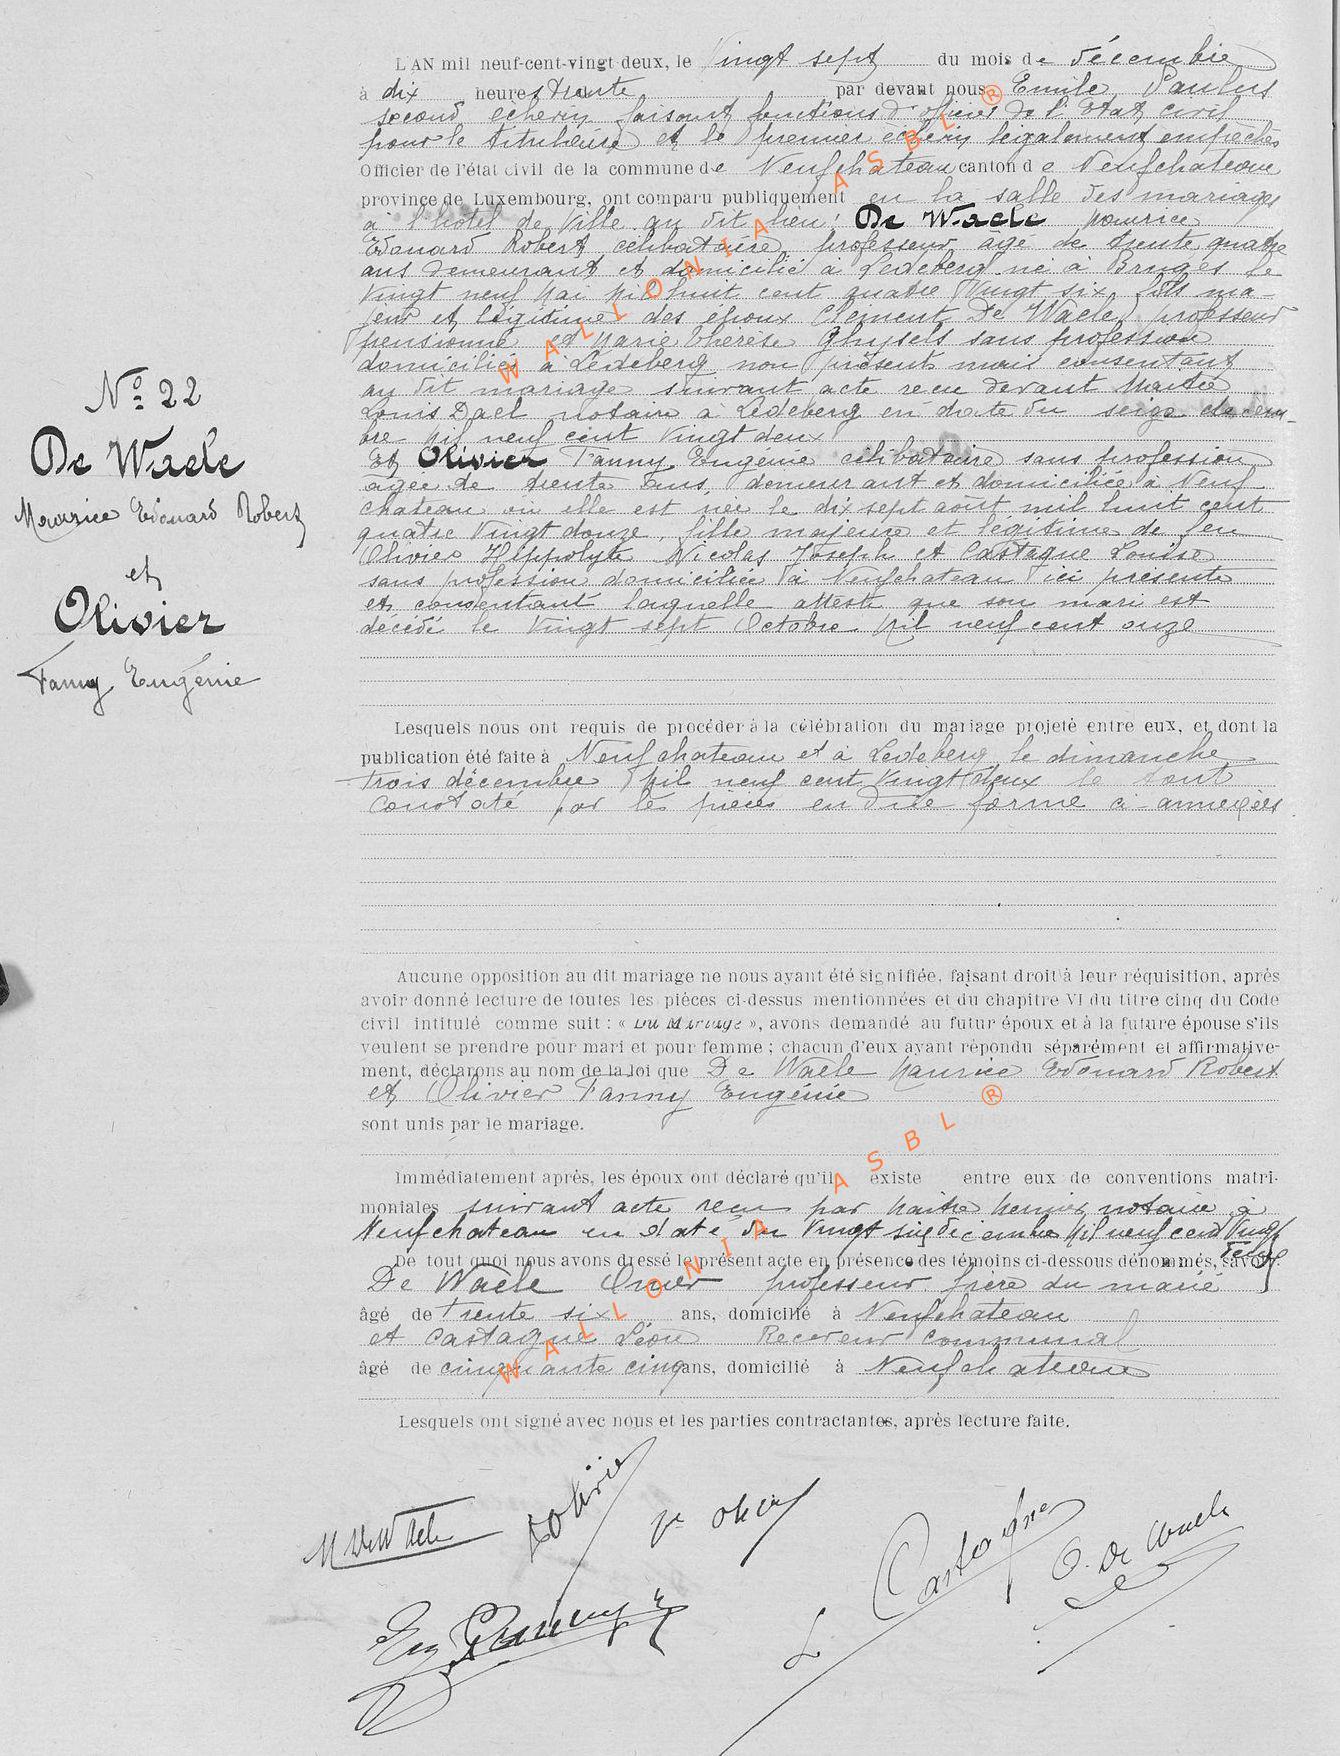 L'AN mil neuf-cent-vingt deux, le Vingt sept du mois de décembre
à dix heures trente par devant nous Emile Paulus
second échevin faisant fonctions d'officier de l'Etat civil
pour le titulaire et le premier échevin légalement empêchés
Officier de l'état civil de la commune de Neufchateau canton de Neufchateau
province de Luxembourg, ont comparu publiquement en la salle des mariages
à l'hotel de Ville au dit lieu: De Waele Maurice
Edouard Robert célibataire, professeur âgé de trente quatre
ans demeurant et domicilié à Ledeberg né à Bruges le
Vingt neuf Mai Mil huit cent quatre Vingt six, fils ma-
jeur et légitime des époux Clément De Waele, professeur
pensionné et Marie Thérèse Ghysels sans profession
domiciliés à Ledeberg non présents mais consentant
au dit mariage suivant acte recu devant Maitre
Louis Dael notaire à Ledeberg en date du seize décem-
bre Mil neuf cent Vingt deux
Et Olivier Fanny Eugénie célibataire sans profession
âgée de trente ans, demeurant et domiciliée à Neuf
chateau ou elle est née le dix sept août mil huit cent
quatre Vingt douze, fille majeure et légitime de feu
Olivier Hippolyte Nicolas Joseph et Castagne Louise
sans profession domiciliée à Neufchateau ici présente
et consentant laquelle atteste que son mari est
décédé le Vingt sept Octobre Mil neuf cent onze
Nº 22
De Waele
Maurice Edouard Robert
et
Olivier
Fanny Eugénie
Lesquels nous ont requis de procéder à la célébration du mariage projeté entre eux, et dont la
publication été faite à Neufchateau et à Ledeberg le dimanche
trois décembre Mil neuf cent Vingt deux le tout
constaté par les pièces en due forme ci-annexées
Aucune opposition au dit mariage ne nous ayant été signifiée, faisant droit à leur réquisition, après
avoir donné lecture de toutes les pièces ci-dessus mentionnées et du chapitre VI du titre cinq du Code
civil intitulé comme suit : « Du Mariage », avons demandé au futur époux et à la future épouse s'ils
veulent se prendre pour mari et pour femme ; chacun d'eux ayant répondu séparément et affirmative-
ment, déclarons au nom de la loi que De Waele Maurice Edouard Robert
et Olivier Fanny Eugénie
sont unis par le mariage.
Immédiatement après, les époux ont déclaré qu'il existe entre eux de conventions matri-
moniales suivant acte recu par Maitre notaire à
Neufchateau en date du Vingt six décembre Mil neuf cent Vingt
deux
De tout quoi nous avons dressé le présent acte en présence des témoins ci-dessous dénommés, savoir:
De Waele Omer professeur frère du marié
âgé de trente six ans, domicilié à Neufchateau
et Castagne Léon Receveur communal
âgé de cinquante cinq ans, domicilié à Neufchateau
Lesquels ont signé avec nous et les parties contractantes, après lecture faite.
M DeWaele
L Castagne
O. De Waele
WALLONIA ASBL ®
WALLONIA ASBL ®